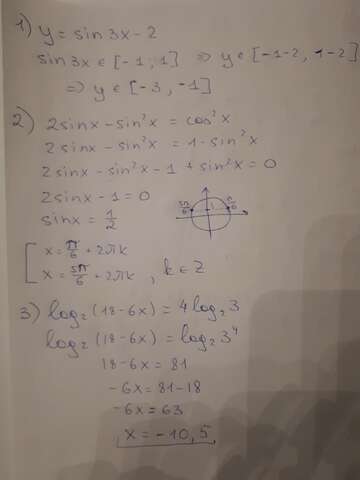 1) y = sin 3x - 2
sin 3x ∈ [-1, 1] ⇒ y ∈ [-1-2, 1-2]
⇒ y ∈ [-3, -1]
2) 2sinx - sin²x = cos²x
2sinx - sin²x = 1 - sin²x
2sinx - sin²x - 1 + sin²x = 0
2sinx - 1 = 0
sinx = 1/2
5π/6 π/6
[ x = π/6 + 2πk
x = 5π/6 + 2πk , k ∈ Z
3) log₂ (18 - 6x) = 4 log₂ 3
log₂ (18 - 6x) = log₂ 3⁴
18 - 6x = 81
-6x = 81 - 18
-6x = 63
x = -10,5